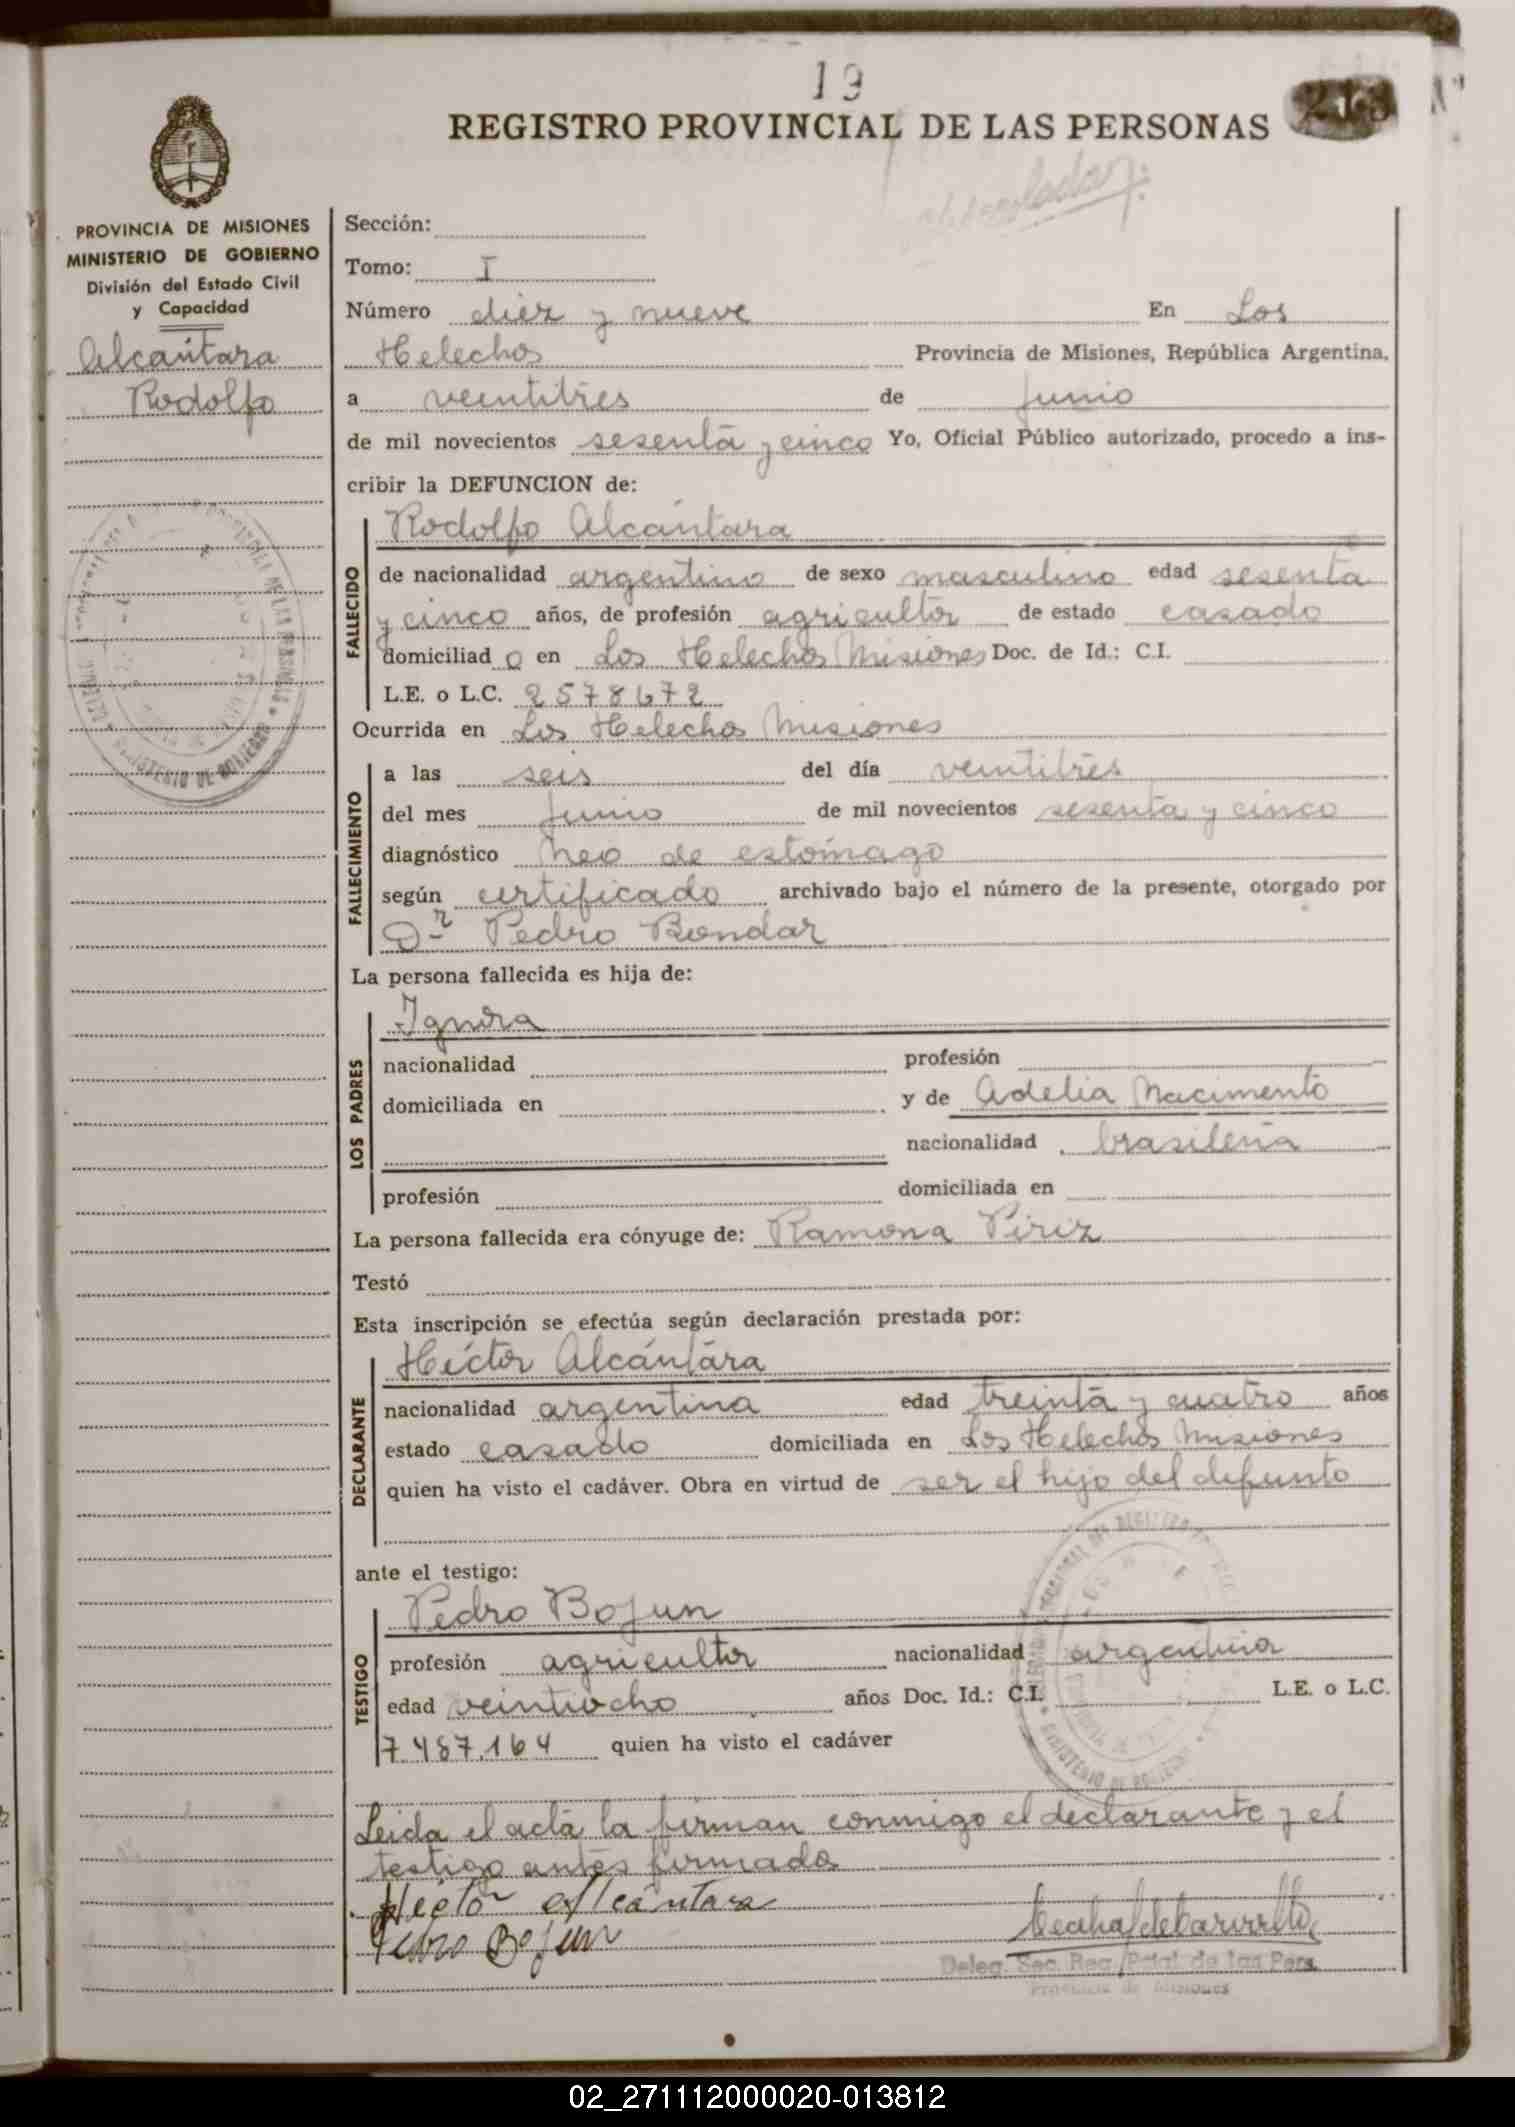 19
REGISTRO PROVINCIAL DE LAS PERSONAS
PROVINCIA DE MISIONES
MINISTERIO DE GOBIERNO
División del Estado Civil
y Capacidad
Alcántara
Rodolfo
Sección:
Tomo: I
Número diez y nueve En Los
Helechos Provincia de Misiones, República Argentina,
a veintitrés de Junio
de mil novecientos sesenta y cinco Yo, Oficial Público autorizado, procedo a ins-
cribir la DEFUNCION de:
FALLECIDO
Rodolfo Alcántara
de nacionalidad argentino de sexo masculino edad sesenta
y cinco años, de profesión agricultor de estado casado
domiciliad o en Los Helechos Misiones Doc. de Id.: C.I.
L.E. o L.C. 2578672
Ocurrida en Los Helechos Misiones
FALLECIMIENTO
a las seis del día veintitrés
del mes Junio de mil novecientos sesenta y cinco
diagnóstico neo de estómago
según certificado archivado bajo el número de la presente, otorgado por
Dr Pedro Bondar
La persona fallecida es hija de:
LOS PADRES
Ignora
nacionalidad profesión
domiciliada en y de Adelia Nacimento
nacionalidad brasileña
profesión domiciliada en
La persona fallecida era cónyuge de: Ramona Piriz
Testó
Esta inscripción se efectúa según declaración prestada por:
DECLARANTE
Héctor Alcántara
nacionalidad argentina edad treinta y cuatro años
estado casado domiciliada en Los Helechos Misiones
quien ha visto el cadáver. Obra en virtud de ser el hijo del difunto
ante el testigo:
TESTIGO
Pedro Bojun
profesión agricultor nacionalidad argentina
edad veintiocho años Doc. Id.: C.I. L.E. o L.C.
7.487.164 quien ha visto el cadáver
Leida el acta la firman conmigo el declarante y el
testigo antes firmado
Héctor Alcántara
Pedro Bojun
Deleg. Sec. Reg. Pcial. de las Pers.
Provincia de Misiones
02_271112000020-013812